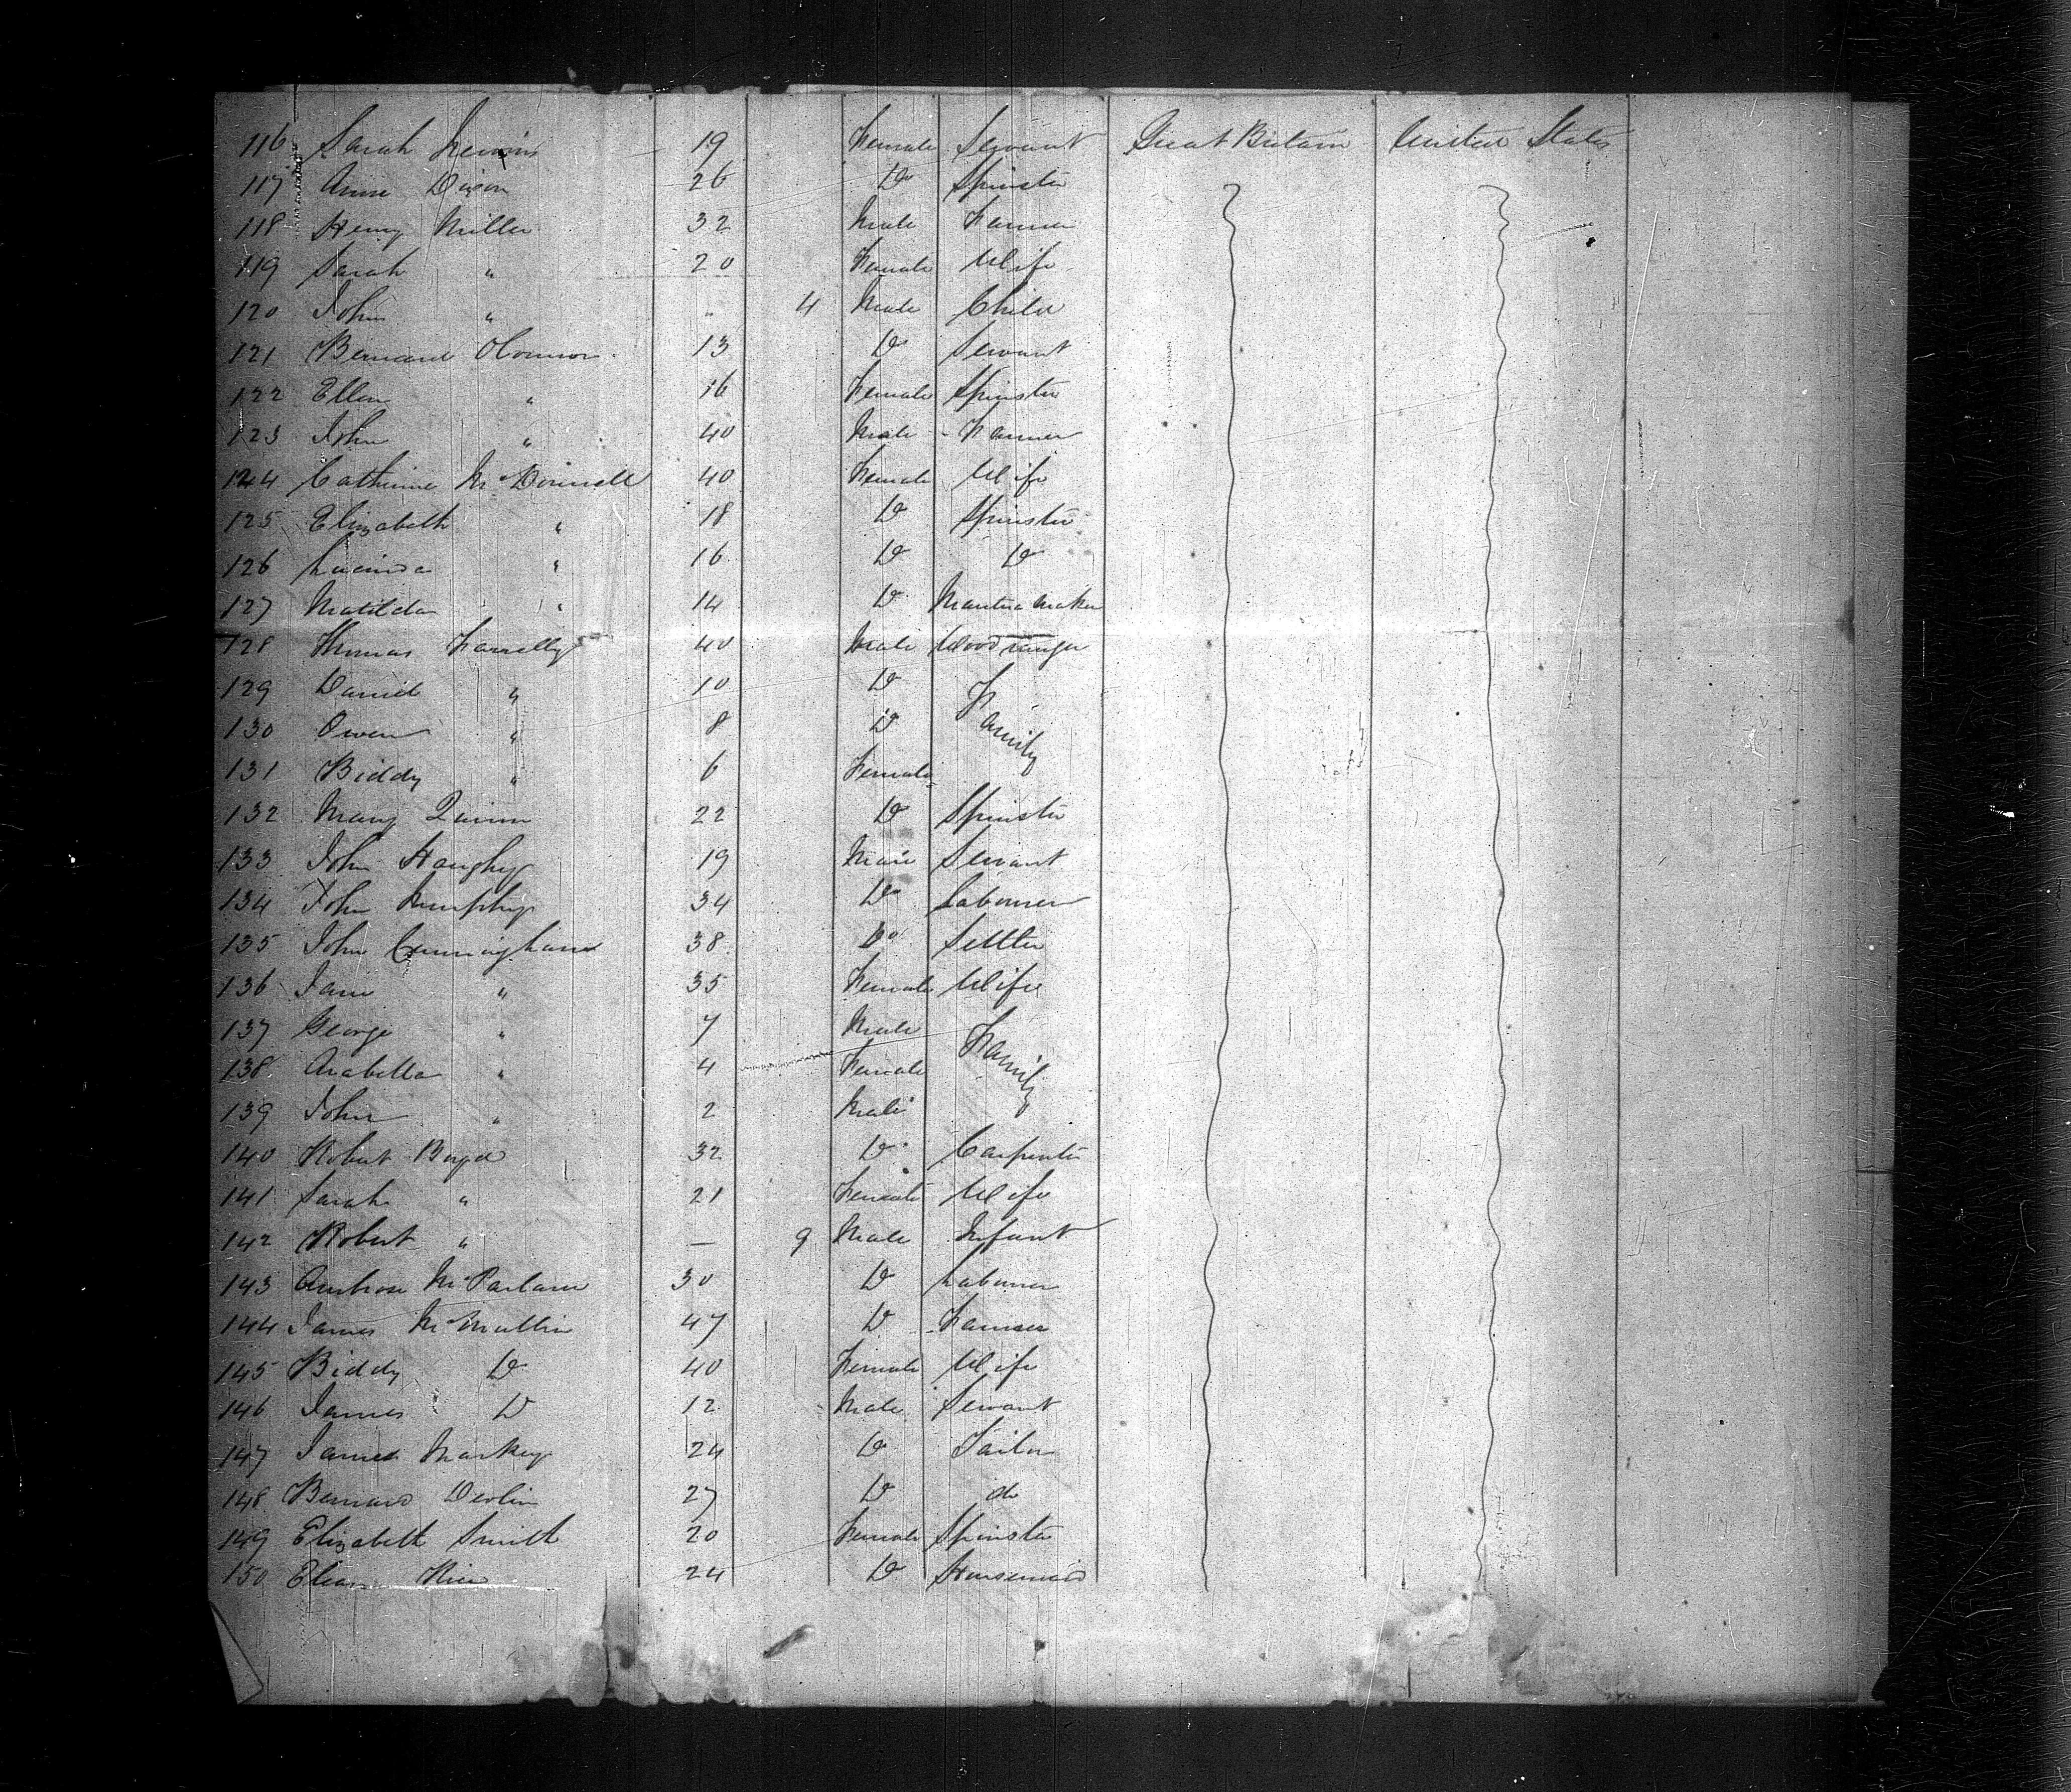 116 Sarah 19 Female Servant Great Britain United States
117 Anne Dixon 26 Do Spinster
118 Henry Miller 32 Male Farmer
119 Sarah " 20 Female Wife
120 John " " 4 Male Child
121 Bernard OConnor 13 Do Servant
122 Ellen " 16 Female Spinster
123 John " 40 Male Farmer
124 Catherine McDonnell 40 Female Wife
125 Elizabeth " 18 Do Spinster
126 Lucinda " 16 Do Do
127 Matilda " 14 Do Mantua Maker
128 Thomas Farrelly 40 Male Wood ranger
129 Daniel " 10 Do Family
130 Owen " 8 Do
131 Biddy " 6 Female
132 Mary Quinn 22 Do Spinster
133 John Haughy 19 Male Servant
134 John Murphy 34 Do Labourer
135 John Cunningham 38 Do Settler
136 Jane " 35 Female Wife
137 George " 7 Male Family
138 Arabella " 4 Female
139 John " 2 Male
140 Robert Boyd 32 Do Carpenter
141 Sarah " 21 Female Wife
142 Robert " — 9 Male Infant
143 Ambrose McParlane 30 Do Labourer
144 James McMullin 47 Do Farmer
145 Biddy Do 40 Female Wife
146 James Do 12 Male Servant
147 James Markey 24 Do Tailor
148 Bernard Devlin 27 Do do
149 Elizabeth Smith 20 Female Spinster
150 24 Do Housemaid